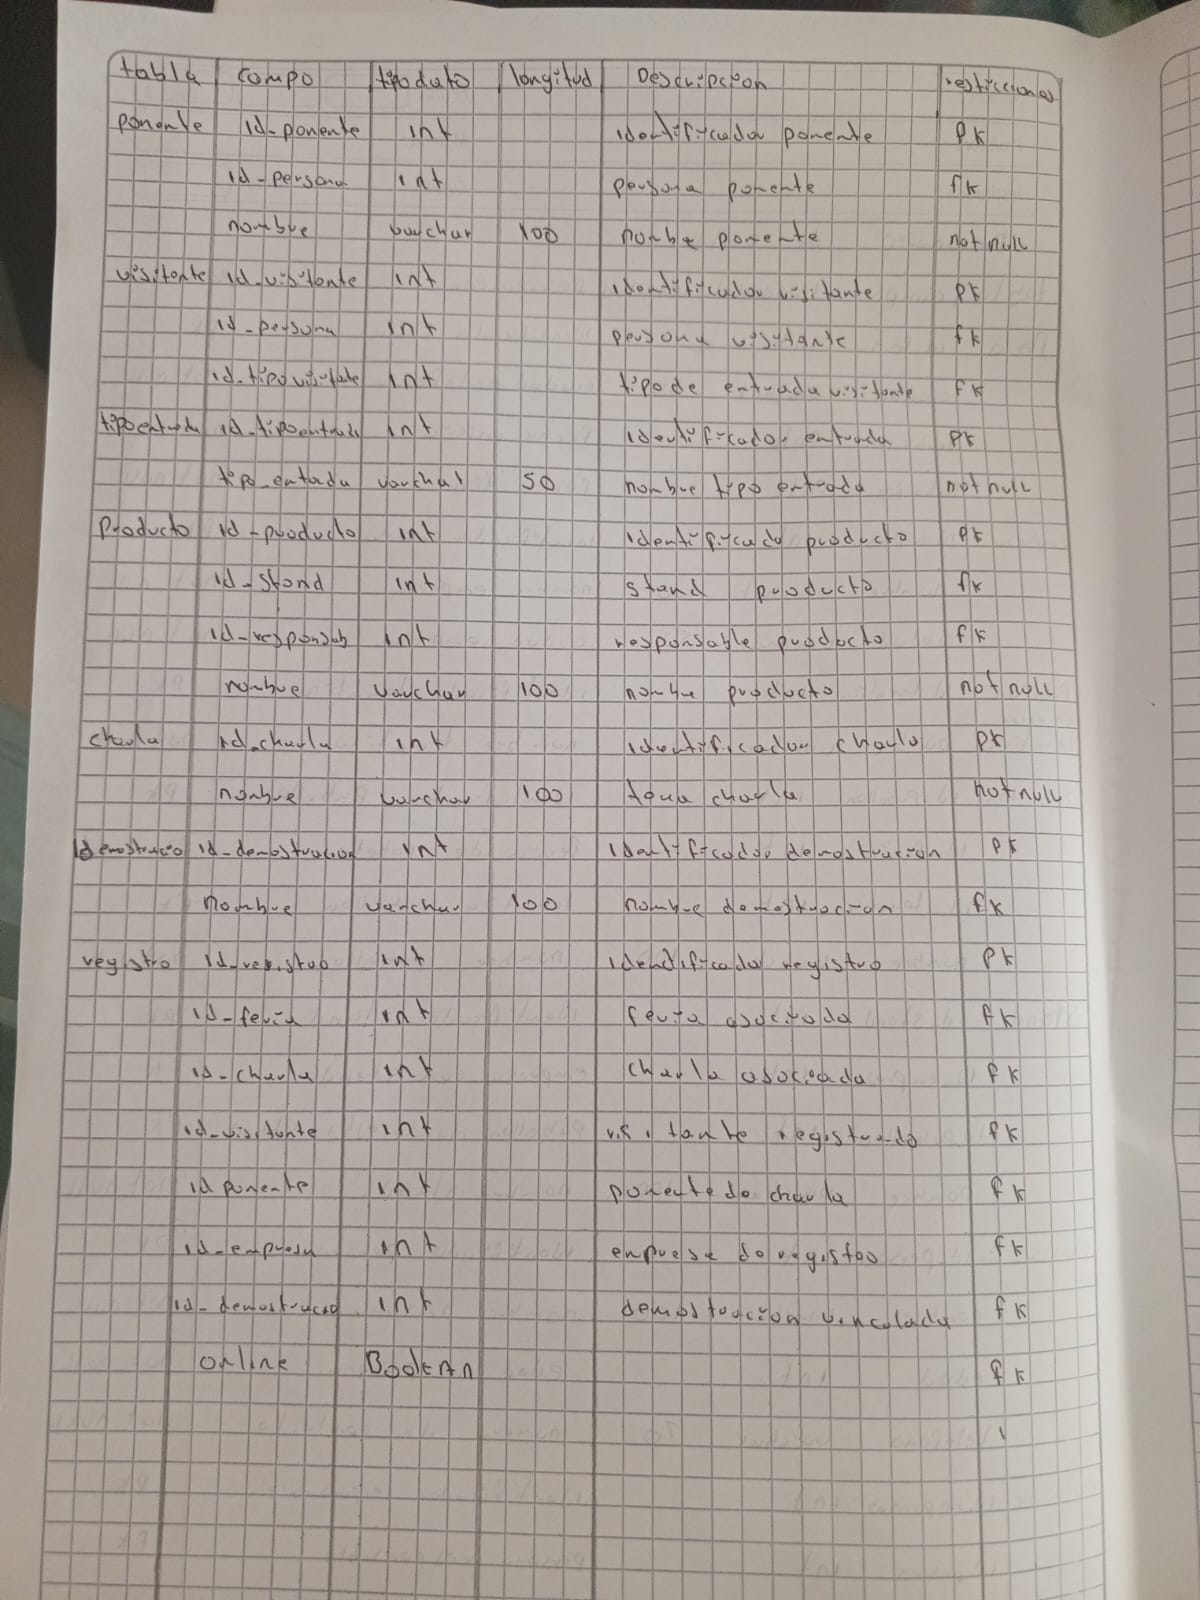 tabla campo tipo dato longitud Descripcion restricciones
ponente id-ponente int identificador ponente PK
id-persona int persona ponente fk
nombre varchar 100 nombe ponente not null
visitante id-visitante int identificador visitante PK
id-persona int persona visitante fk
id-tipovisitate int tipo de entrada visitante fk
tipoentrada id-tipoentrada int identificador entrada PK
tipo-entrada varchar 50 nombre tipo entrada not null
Producto id-producto int identificado producto PK
id-stand int stand producto fk
id-responsab int responsable producto fk
nombre varchar 100 nombre producto not null
charla id-charla int identificador charla PK
nombre varchar 100 charla not null
id-demostracion int identificador demostracion PK
nombre varchar 100 nombre demostracion fk
registro id-registro int idendificador registro PK
id-feria int feria asociada fk
id-charla int charla asociada fk
id-visitante int visitante registrado fk
id ponente int ponente de charla fk
id-empresa int enpresa de registro fk
id-demostracio int demostracion vinculada fk
online BooleAn fk